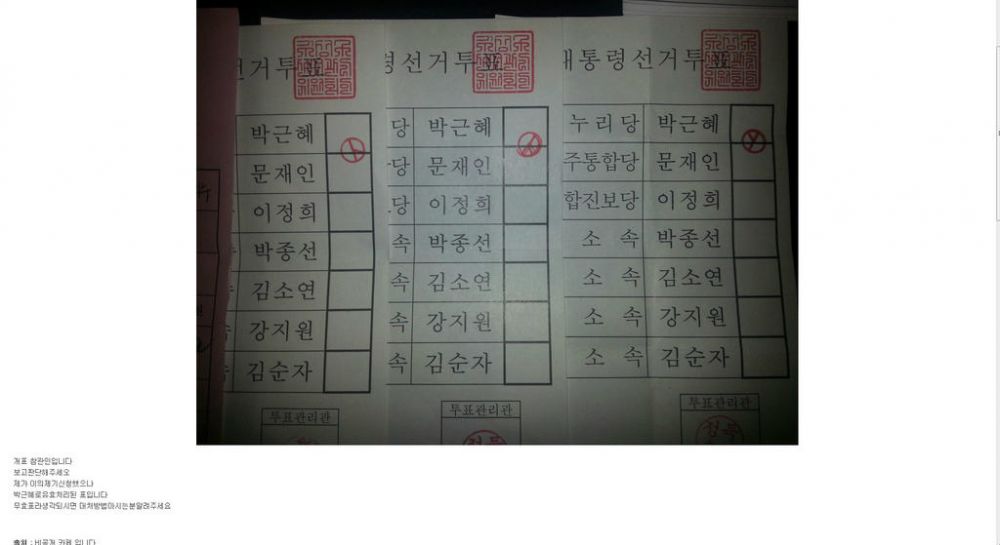 선거투표
령선거투표
대통령선거투표
박근혜
문재인
이정희
박종선
김소연
강지원
김순자
투표관리관
당 박근혜
당 문재인
당 이정희
속 박종선
속 김소연
속 강지원
속 김순자
투표관리관
누리당 박근혜
주통합당 문재인
합진보당 이정희
소 속 박종선
소 속 김소연
소 속 강지원
소 속 김순자
투표관리관
개표 참관인입니다
보고판단해주세오
제가 이의제기신청했으나
박근혜로유효처리된 표입니다
무효표라생각되시면 대처방법아시는분알려주세요
출처 : 비공개 카페 입니다